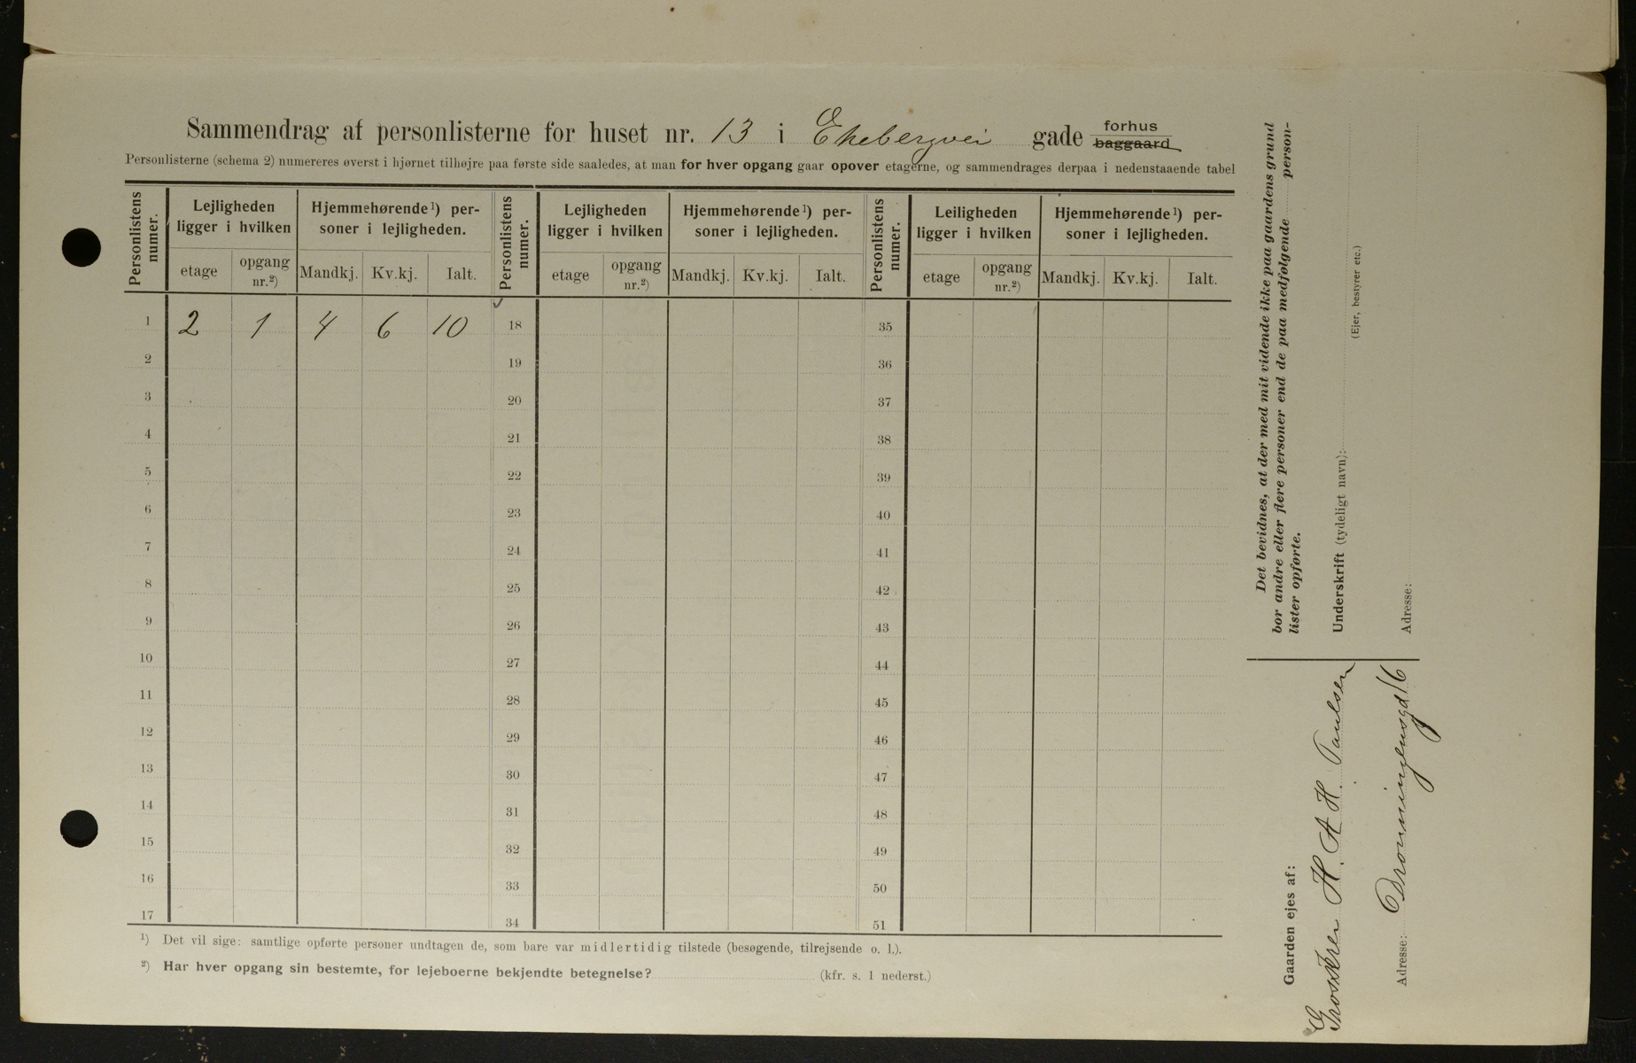 Sammendrag af personlisterne for huset nr. 13 i Ekebergvei gade forhus
baggaard
Personlisterne (schema 2) numereres øverst i hjørnet tilhøjre paa første side saaledes, at man for hver opgang gaar opover etagerne, og sammendrages derpaa i nedenstaaende tabel
Personlistens numer. Lejligheden ligger i hvilken Hjemmehørende ¹) personer i lejligheden. Personlistens numer. Lejligheden ligger i hvilken Hjemmehørende ¹) personer i lejligheden. Personlistens numer. Leiligheden ligger i hvilken Hjemmehørende ¹) personer i lejligheden.
etage opgang nr.²) Mandkj. Kv.kj. Ialt. etage opgang nr.²) Mandkj. Kv.kj. Ialt. etage opgang nr.²) Mandkj. Kv.kj. Ialt.
1 2 1 4 6 10 18 35
2 19 36
3 20 37
4 21 38
5 22 39
6 23 40
7 24 41
8 25 42
9 26 43
10 27 44
11 28 45
12 29 46
13 30 47
14 31 48
15 32 49
16 33 50
17 34 51
¹) Det vil sige: samtlige opførte personer undtagen de, som bare var midlertidig tilstede (besøgende, tilrejsende o. l.).
²) Har hver opgang sin bestemte, for lejeboerne bekjendte betegnelse? (kfr. s. 1 nederst.)
Det bevidnes, at der med mit vidende ikke paa gaardens grund
bor andre eller flere personer end de paa medfølgende person-
lister opførte.
Underskrift (tydeligt navn):
(Ejer, bestyrer etc.)
Adresse:
Gaarden ejes af:
Grosserer H. A. H. Paulsen
Adresse: Dronningensgd 16